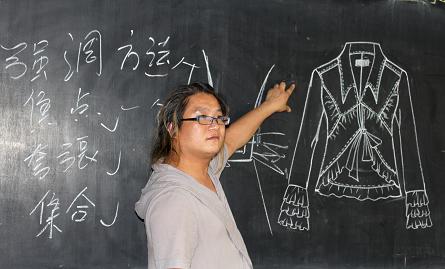 强调 方
焦点
夸张
集合